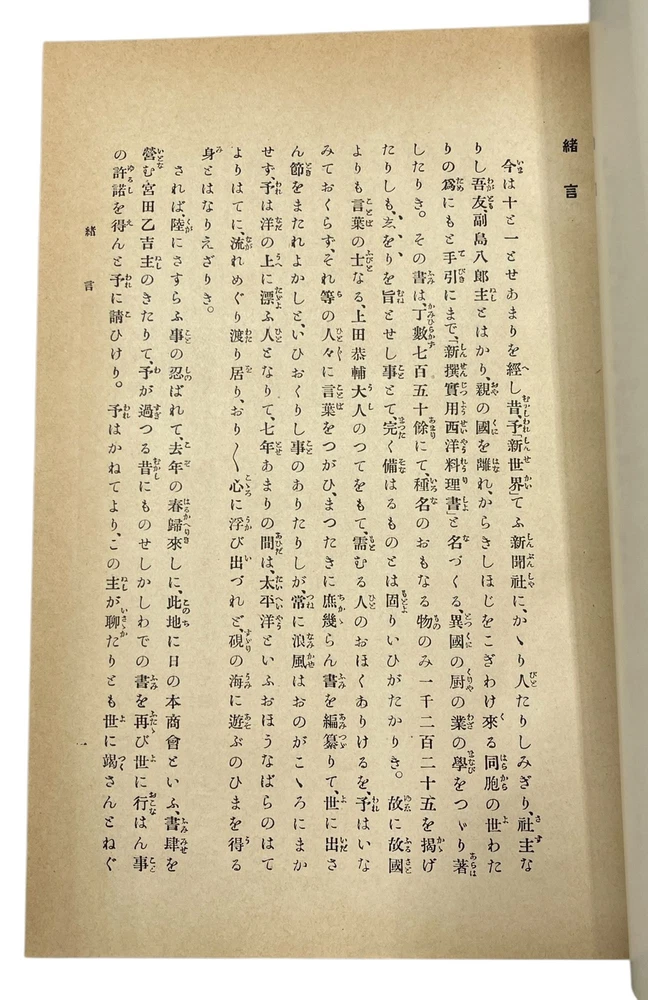 緒言
今は十と一とせあまりを經し昔、予新世界てふ新聞社に、かゝり人たりしみぎり、社主な
りし吾友、副島八郎主とはかり、親の國を離れ、からきしほじをこぎわけ來る同胞の世わた
りの爲にもと手引にまで、「新撰實用西洋料理書」と名づくる、異國の厨の業の學をつゞり著
したりき。その書は、丁數七百五十餘にて、種名のおもなる物のみ一千二百二十五を揭げ
たりしも、をりを旨とせし事とて、完く備はるものとは固りいひがたかりき。故に故國
よりも言葉の士なる、上田恭輔大人のつてをもて、需むる人のおほくありけるを、予はいな
みておくらず、それ等の人々に言葉をつがひ、まつたきに庶幾らん書を編纂りて、世に出さ
ん節をまたれよかしと、いひおくりし事のありたりしが、常に浪風はおのがこゝろにまか
せず、予は洋の上に漂ふ人となりて、七年あまりの間は、太平洋といふおほうなばらのはて
よりはてに、流れめぐり渡り居り、おり〱心に浮び出づれど、硯の海に遊ぶのひまを得る
身とはなりえざりき。
されば、陸にさすらふ事の忍ばれて、去年の春歸來しに、此地に日の本商會といふ、書肆を
營む宮田乙吉主のきたりて、予が過つる昔にものせしかしわでの書を再び世に行はん事
の許諾を得んと予に請ひけり。予はかねてより、この主が聊たりとも世に竭さんとねぐ
緒言
一